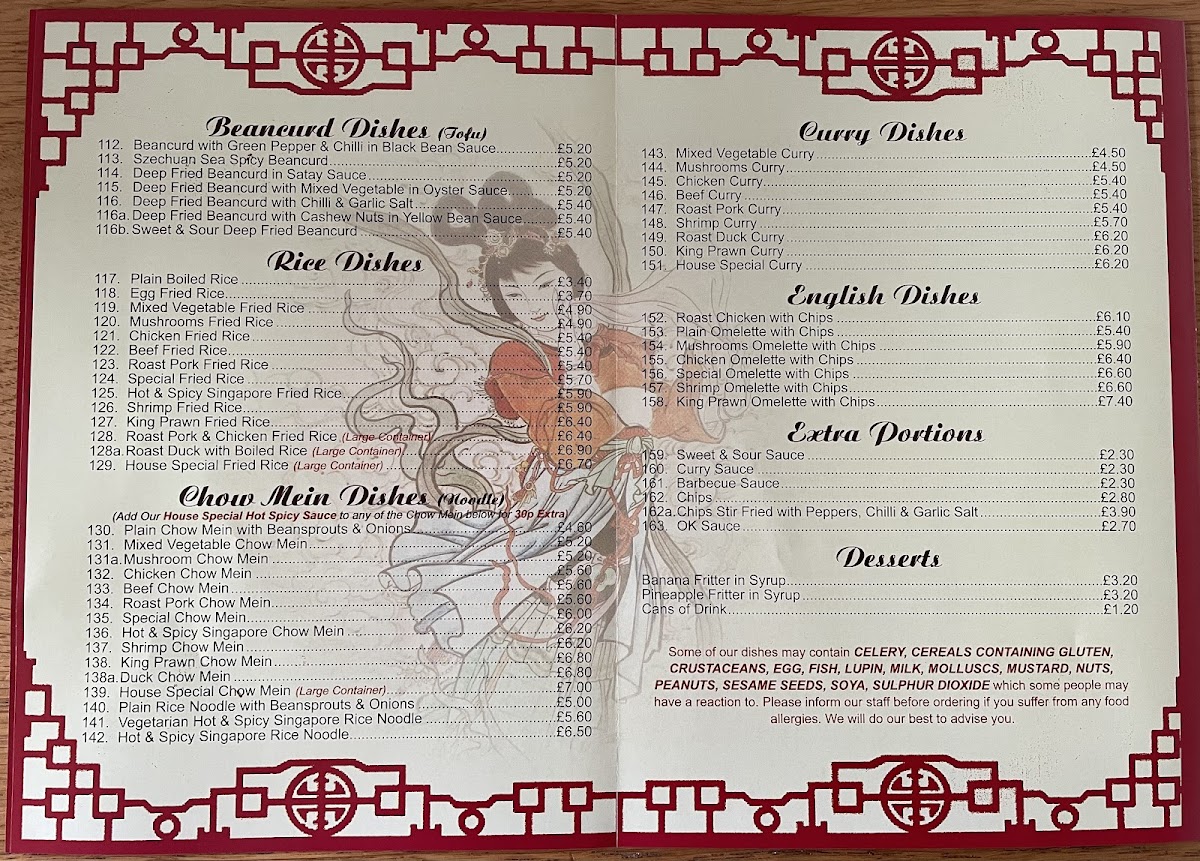 Beancurd Dishes (Tofu)
112. Beancurd with Green Pepper & Chilli in Black Bean Sauce £5.20
113. Szechuan Sea Spicy Beancurd £5.20
114. Deep Fried Beancurd in Satay Sauce £5.20
115. Deep Fried Beancurd with Mixed Vegetable in Oyster Sauce £5.20
116. Deep Fried Beancurd with Chilli & Garlic Salt £5.40
116a. Deep Fried Beancurd with Cashew Nuts in Yellow Bean Sauce £5.40
116b. Sweet & Sour Deep Fried Beancurd £5.40
Rice Dishes
117. Plain Boiled Rice £3.40
118. Egg Fried Rice £3.70
119. Mixed Vegetable Fried Rice £4.90
120. Mushrooms Fried Rice £4.90
121. Chicken Fried Rice £5.40
122. Beef Fried Rice £5.40
123. Roast Pork Fried Rice £5.40
124. Special Fried Rice £5.70
125. Hot & Spicy Singapore Fried Rice £5.90
126. Shrimp Fried Rice £5.90
127. King Prawn Fried Rice £6.40
128. Roast Pork & Chicken Fried Rice (Large Container) £6.40
128a. Roast Duck with Boiled Rice (Large Container) £6.90
129. House Special Fried Rice (Large Container) £6.70
Chow Mein Dishes (Noodle)
(Add Our House Special Hot Spicy Sauce to any of the Chow Mein below for 30p Extra)
130. Plain Chow Mein with Beansprouts & Onions £4.60
131. Mixed Vegetable Chow Mein £5.20
131a. Mushroom Chow Mein £5.20
132. Chicken Chow Mein £5.60
133. Beef Chow Mein £5.60
134. Roast Pork Chow Mein £5.60
135. Special Chow Mein £6.00
136. Hot & Spicy Singapore Chow Mein £6.20
137. Shrimp Chow Mein £6.20
138. King Prawn Chow Mein £6.80
138a. Duck Chow Mein £6.80
139. House Special Chow Mein (Large Container) £7.00
140. Plain Rice Noodle with Beansprouts & Onions £5.00
141. Vegetarian Hot & Spicy Singapore Rice Noodle £5.60
142. Hot & Spicy Singapore Rice Noodle £6.50
Curry Dishes
143. Mixed Vegetable Curry £4.50
144. Mushrooms Curry £4.50
145. Chicken Curry £5.40
146. Beef Curry £5.40
147. Roast Pork Curry £5.40
148. Shrimp Curry £5.70
149. Roast Duck Curry £6.20
150. King Prawn Curry £6.20
151. House Special Curry £6.20
English Dishes
152. Roast Chicken with Chips £6.10
153. Plain Omelette with Chips £5.40
154. Mushrooms Omelette with Chips £5.90
155. Chicken Omelette with Chips £6.40
156. Special Omelette with Chips £6.60
157. Shrimp Omelette with Chips £6.60
158. King Prawn Omelette with Chips £7.40
Extra Portions
159. Sweet & Sour Sauce £2.30
160. Curry Sauce £2.30
161. Barbecue Sauce £2.30
162. Chips £2.80
162a. Chips Stir Fried with Peppers, Chilli & Garlic Salt £3.90
163. OK Sauce £2.70
Desserts
Banana Fritter in Syrup £3.20
Pineapple Fritter in Syrup £3.20
Cans of Drink £1.20
Some of our dishes may contain CELERY, CEREALS CONTAINING GLUTEN,
CRUSTACEANS, EGG, FISH, LUPIN, MILK, MOLLUSCS, MUSTARD, NUTS,
PEANUTS, SESAME SEEDS, SOYA, SULPHUR DIOXIDE which some people may
have a reaction to. Please inform our staff before ordering if you suffer from any food
allergies. We will do our best to advise you.